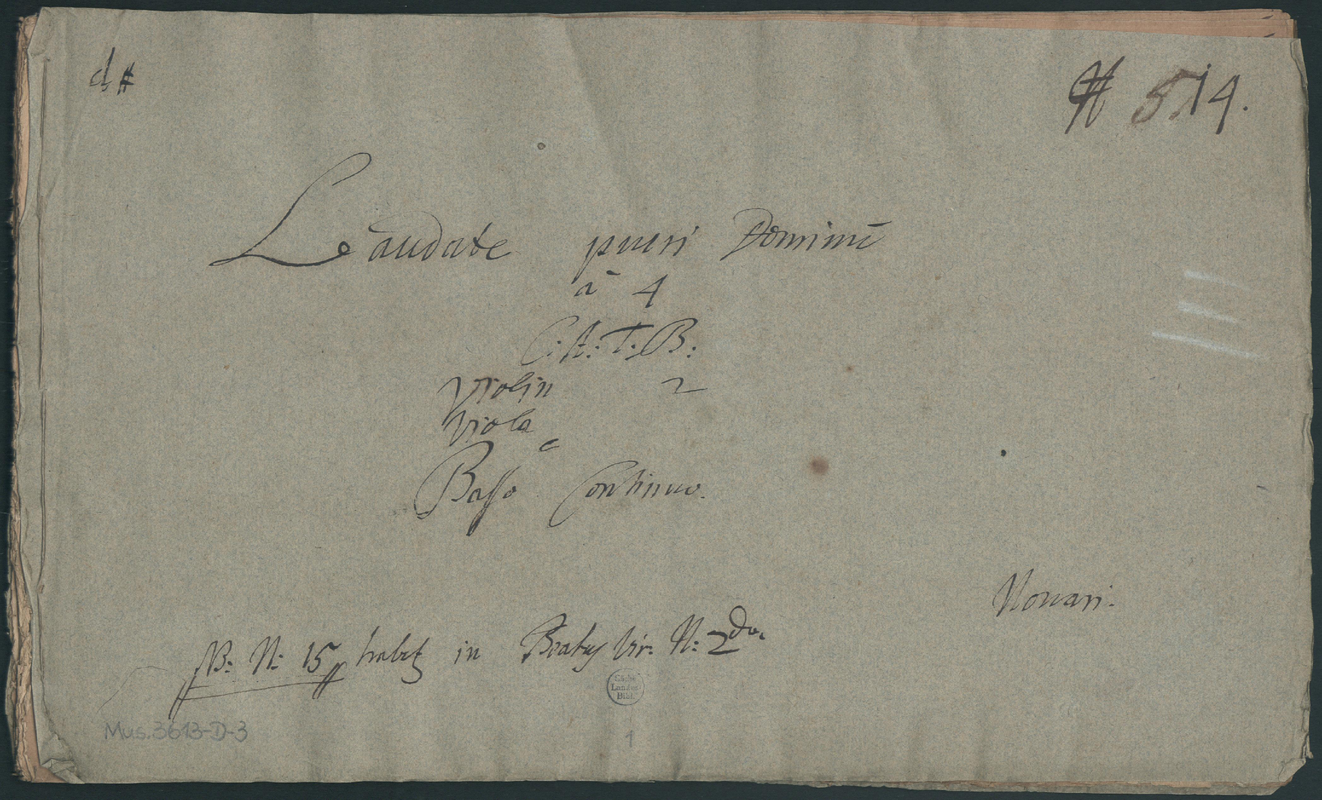 d#
N 5. 14.
Laudate pueri Dominū
à 4
C: A: T: B:
Violin 2
Viola
e
Basso Continuo.
Nouari.
NB: N: 15 habet in Beatus Vir: N: 2do.
Sächs.
Landes
Bibl.
Mus.3613-D-3
1